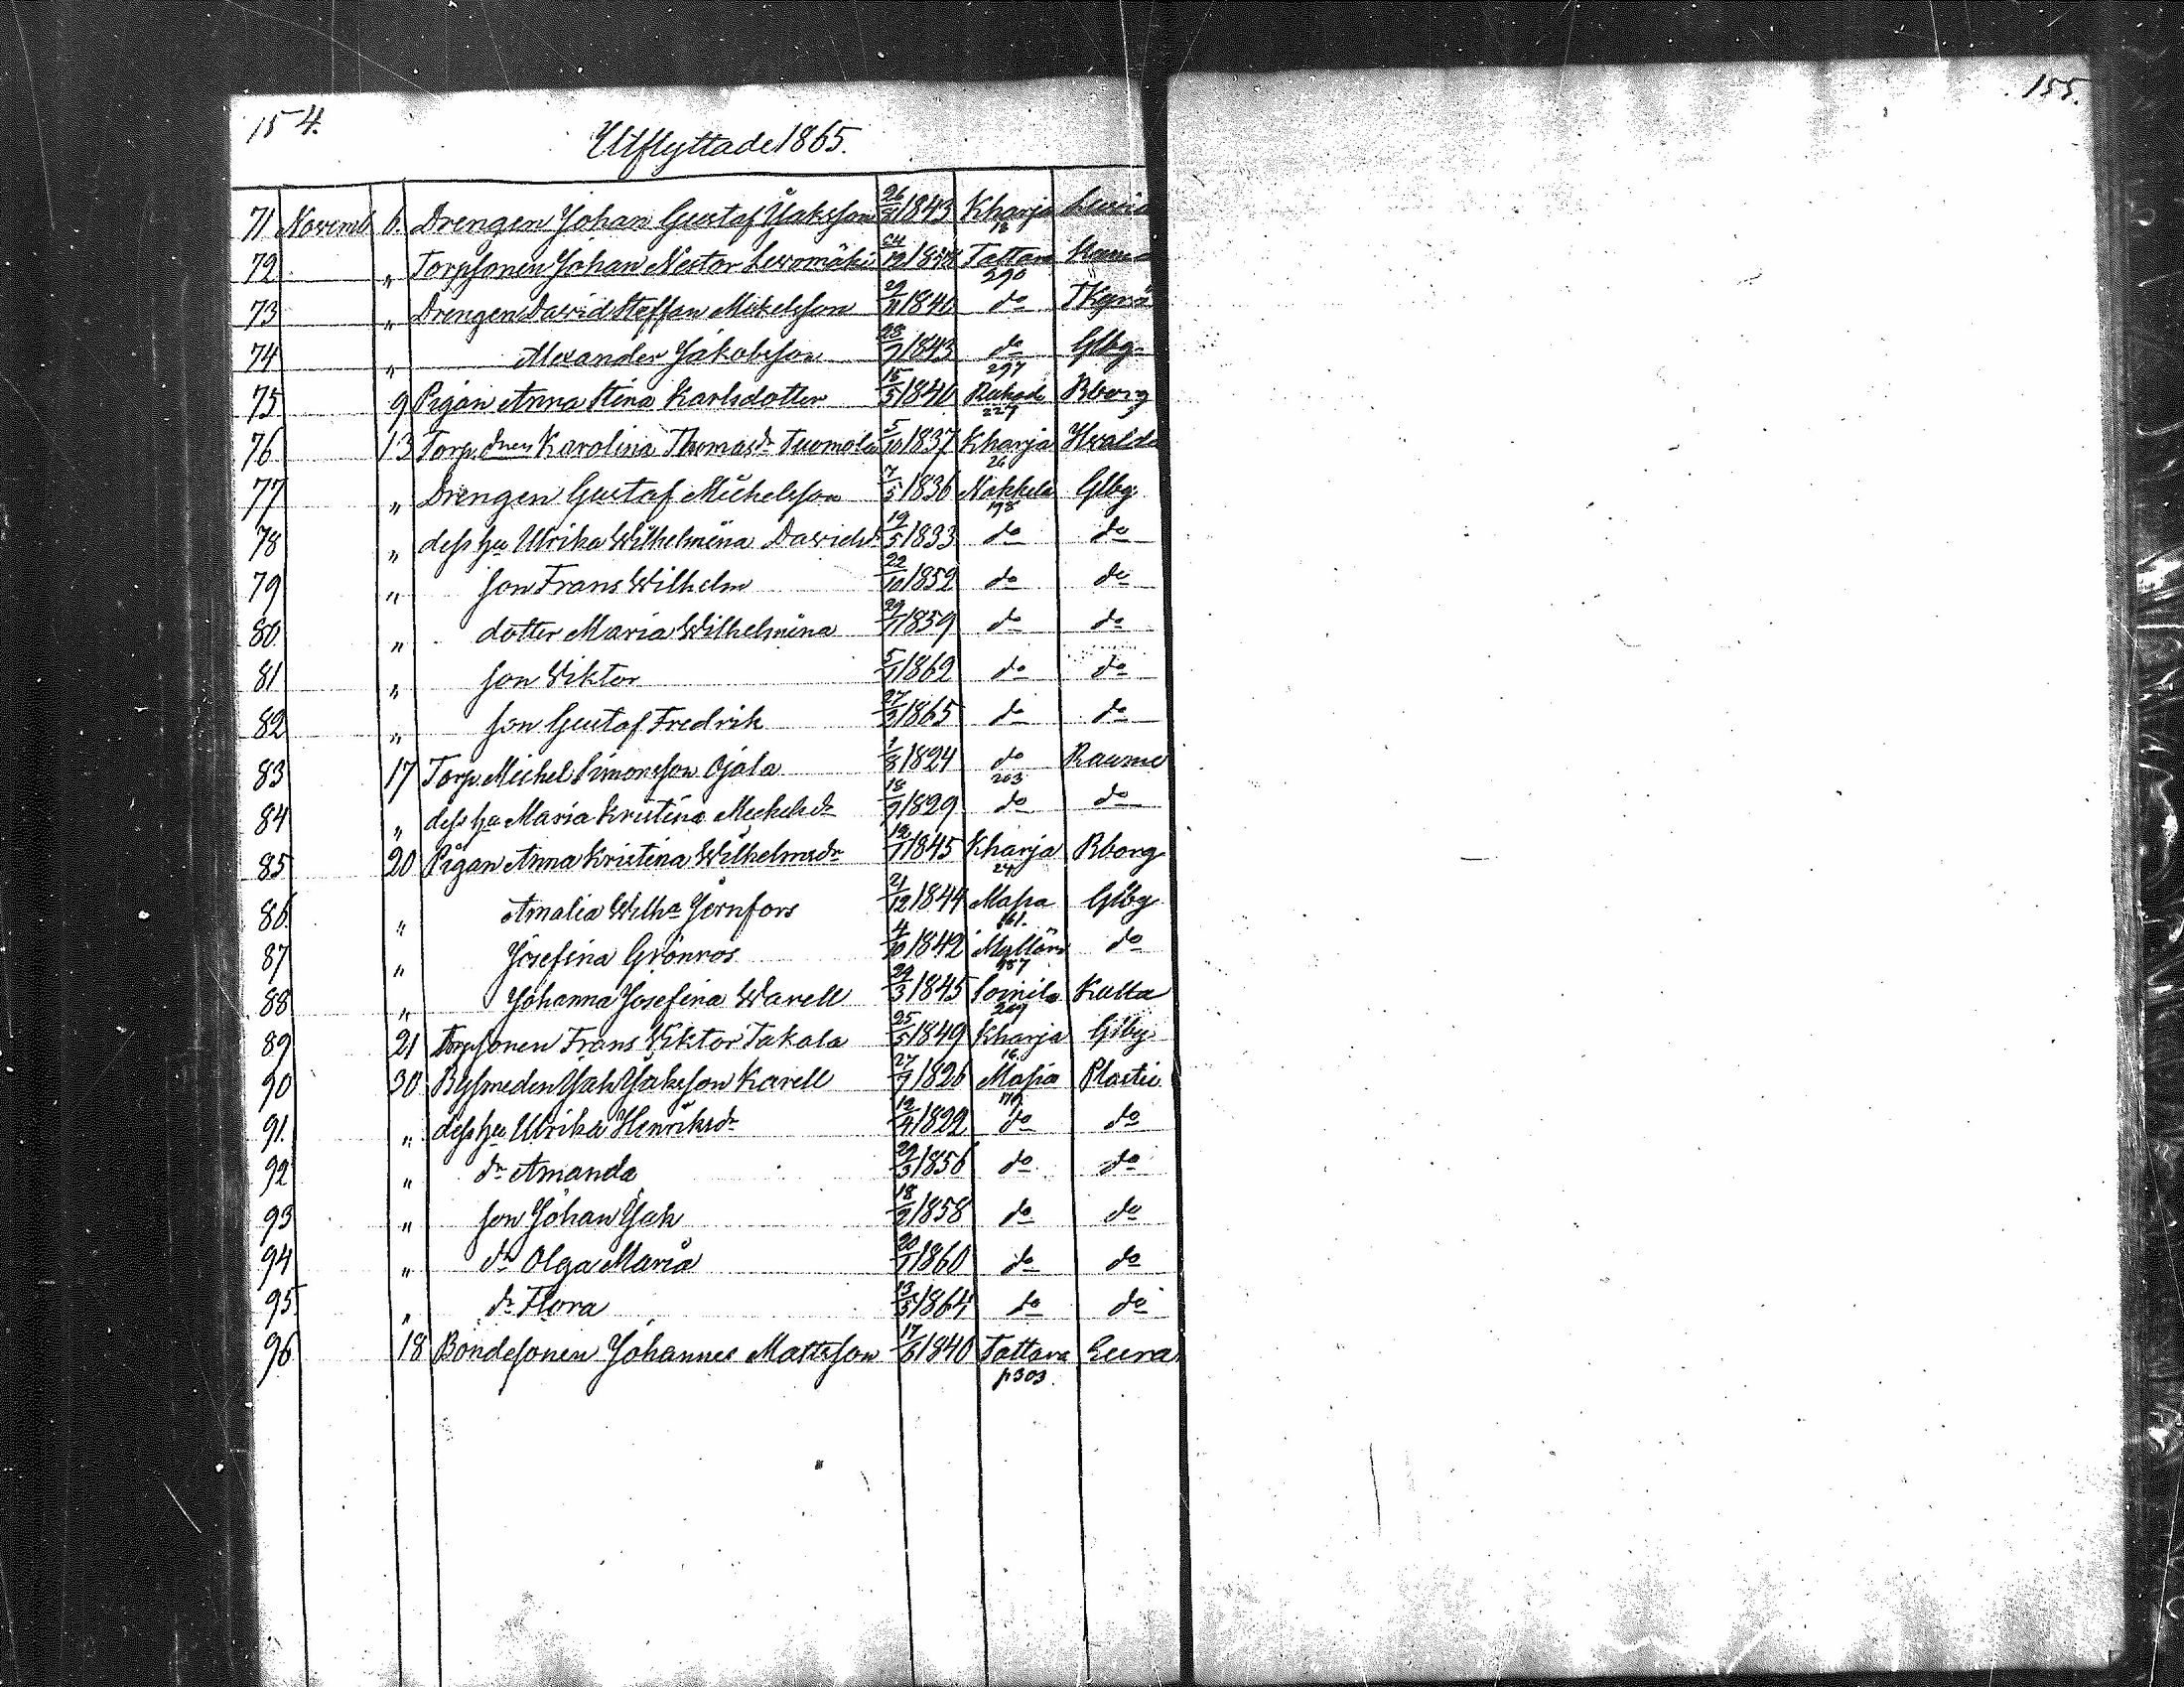 154.
155.
Utflyttade 1865.
71 Novemb. 6. Drengen Johan Gustaf Jaksson 1843 Kharja 18
72 " Torpsonen Johan Nestor 24/12 Tattara 290
73 " Drengen David Steffan Mickelsson 29/11 1840 do
74 " Alexander Jakobsson 23/7 1843 do 297 Glbg
75 9 Pigan Anna Stina Karlsdotter 15/5 1840 229 Bborg
76 13 Torp.dren Karolina Thomasdr Tuomola 5/10 1837 Kharja 26
77 " Drengen Gustaf Michelsson 7/5 1836 Nakkila 198 Glbg
78 " dess hu Ulrika Wilhelmina Davidsd 19/5 1833 do do
79 " son Frans Wilhelm 22/10 1852 do do
80. " dotter Maria Wilhelmina 29/7 1859 do do
81 " son Wiktor 5/1 1862 do do
82 " son Gustaf Fredrik 27/3 1865 do do
83 17 Torp. Michel Simonsson Ojala 1/8 1824 do 203 Raumo
84 " dess hu Maria Kristina Mickelsdr 18/9 1829 do do
85 20 Pigan Anna Kristina Wilhelmsdr 1845 Kharja 24 Bborg
86. " Amalia Wilha Jernfors 21/12 1844 Masia 161. Glbg
87 " Josefina Grönroos 4/10 1842 do
88 " Johanna Josefina Warell 29/3 1845 Soinila 209 Kulla
89 21 Torpsonen Frans Wiktor Takala 25/5 1849 Kharja 16 Glbg
90 30 Bysmeden Jak Jaksson Karell 27/7 1826 Masia 170
91. " dess hu Ulrika Henriksdr 12/4 1822 do do
92 " dr Amanda 29/3 1856 do do
93 " son Johan Jak 18/2 1858 do do
94 " dr Olga Maria 20/7 1860 do do
95. " dr Flora 13/5 1864 do do
96 18 Bondesonen Johannes Mattsson 17/6 1840 Tattara p 303. Eura